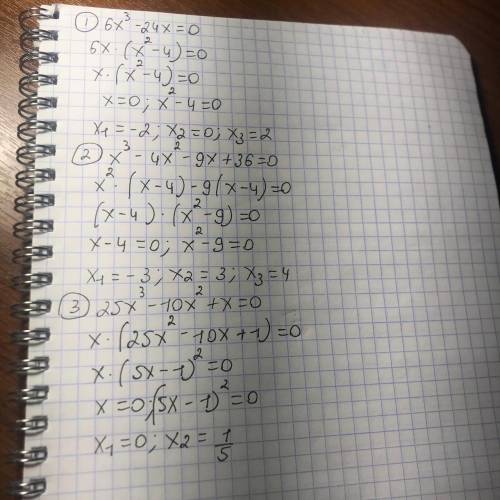 ① 6x³-24x=0
6x·(x²-4)=0
x·(x²-4)=0
x=0; x²-4=0
x₁=-2; x₂=0; x₃=2
② x³-4x²-9x+36=0
x²·(x-4)-9(x-4)=0
(x-4)·(x²-9)=0
x-4=0; x²-9=0
x₁=-3; x₂=3; x₃=4
③ 25x³-10x²+x=0
x·(25x²-10x+1)=0
x·(5x-1)²=0
x=0;(5x-1)²=0
x₁=0; x₂=1/5